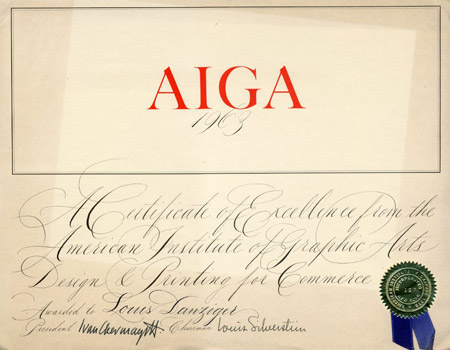 AIGA
1963
A Certificate of Excellence from the
American Institute of Graphic Arts
Design & Printing for Commerce
Awarded to Louis Danziger
President Ivan Chermayeff Chairman Louis Silverstein